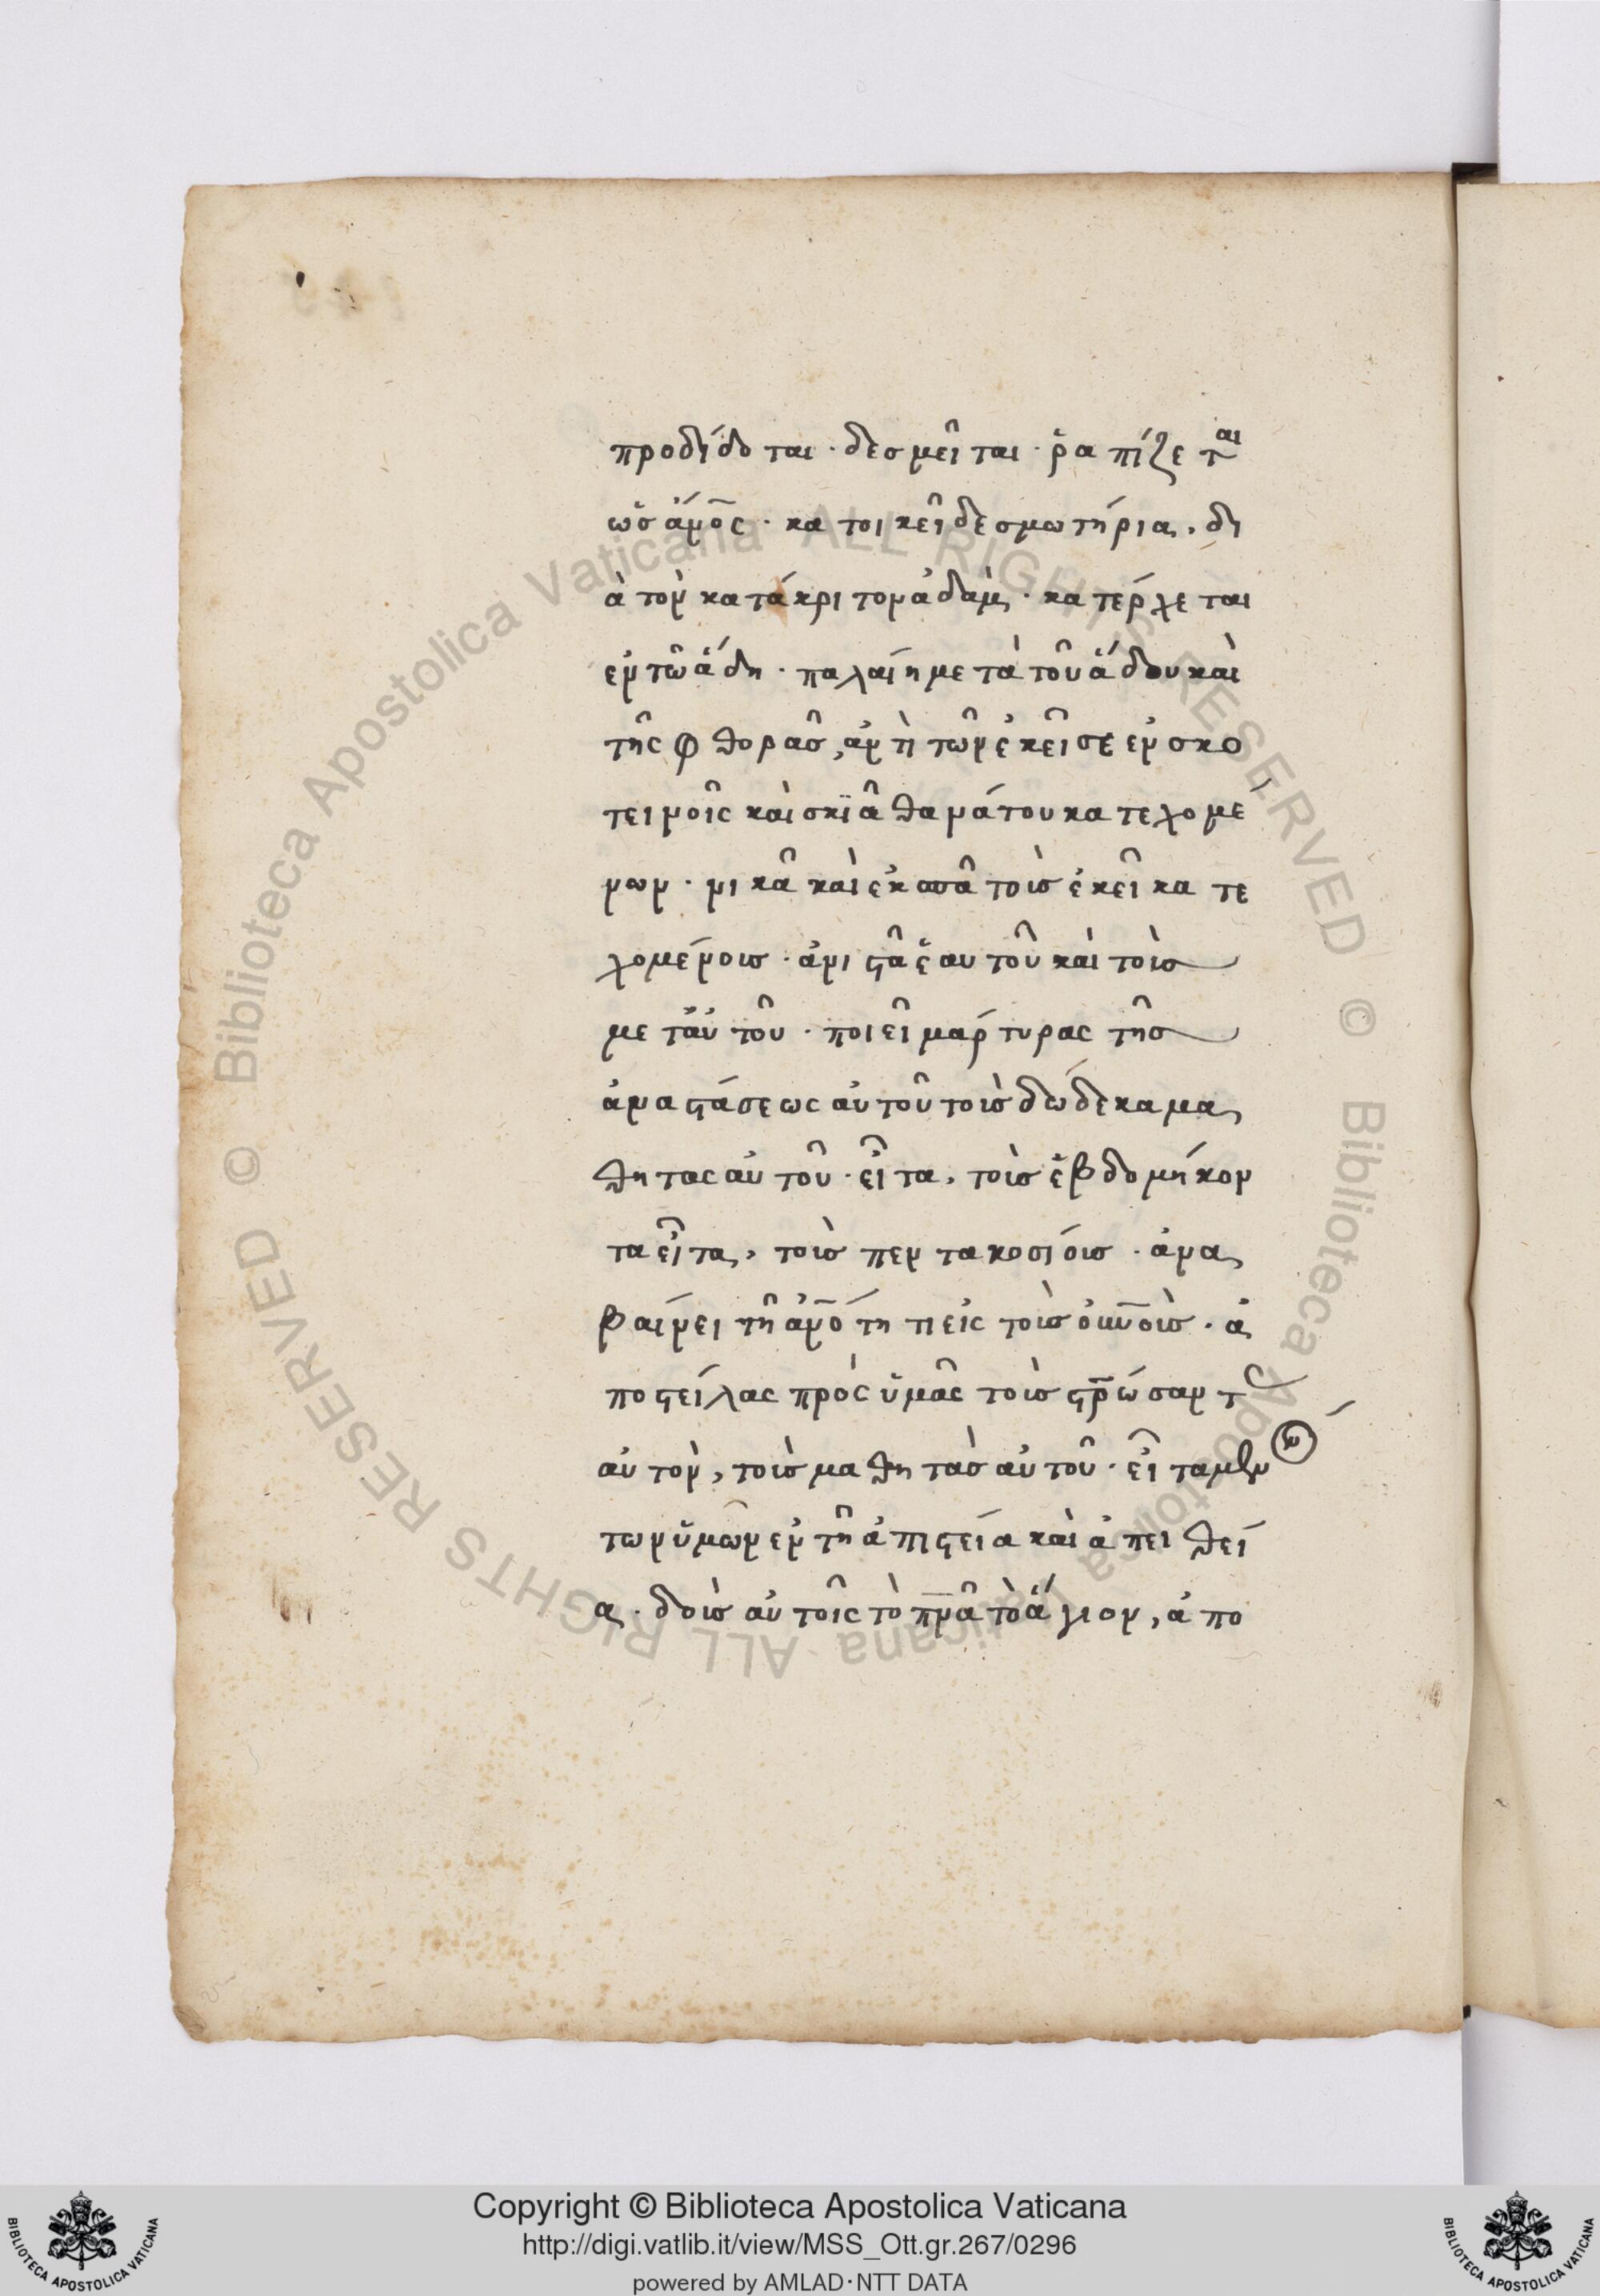 προδίδοται · δεσμεῖται · ῥαπίζεται
ὡς ἄνο̅ς · κατοικεῖ δεσμωτήρια, δι
ὰ τὸν κατάκριτον ἀδὰμ · κατέρχεται
ἐν τῶ ἅδη · παλαίη μετὰ τοῦ ἅδου καὶ
τῆς φθορᾶς, ἀντὶ τῶν ἐκεῖσε ἐν σκο
τεινοῖς καὶ σκϊᾶ θανάτου κατεχομέ
νων · νικᾶ καὶ ἐκσπᾶ τοὺς ἐκεῖ κατε
χομένους · ἀνιστᾶ ἑαυτοῦ καὶ τοὺς
μετ' αὐτοῦ · ποιεῖ μάρτυρας τῆς
ἀναστάσεως αὐτοῦ τοὺς δώδεκα μα
θητας αὐτοῦ · εἶτα, τοὺς ἑβδομήκον
τα εἶτα, τοὺς πεντακοσίους · ἀνα
βαίνει τῆ ἀνο̅́τητι εἰς τοὺς οὐνοὺς · ἀ
ποστείλας πρὸς ὑμᾶς τοὺς στρώσαντ
αὐτὸν, τοὺς μαθητὰς αὐτοῦ · εἶτα μὲν
των ὑμῶν ἐν τῆ ἀπιστεία καὶ ἀπειθεί
α · δοὺς αὐτοῖς τὸ πνᾶ τὸ ἅγιον, ἀπο
Copyright © Biblioteca Apostolica Vaticana
http://digi.vatlib.it/view/MSS_Ott.gr.267/0296
powered by AMLAD·NTT DATA
BIBLIOTECA APOSTOLICA VATICANA
BIBLIOTECA APOSTOLICA VATICANA
© Biblioteca Apostolica Vaticana ALL RIGHTS RESERVED
© Biblioteca Apostolica Vaticana ALL RIGHTS RESERVED